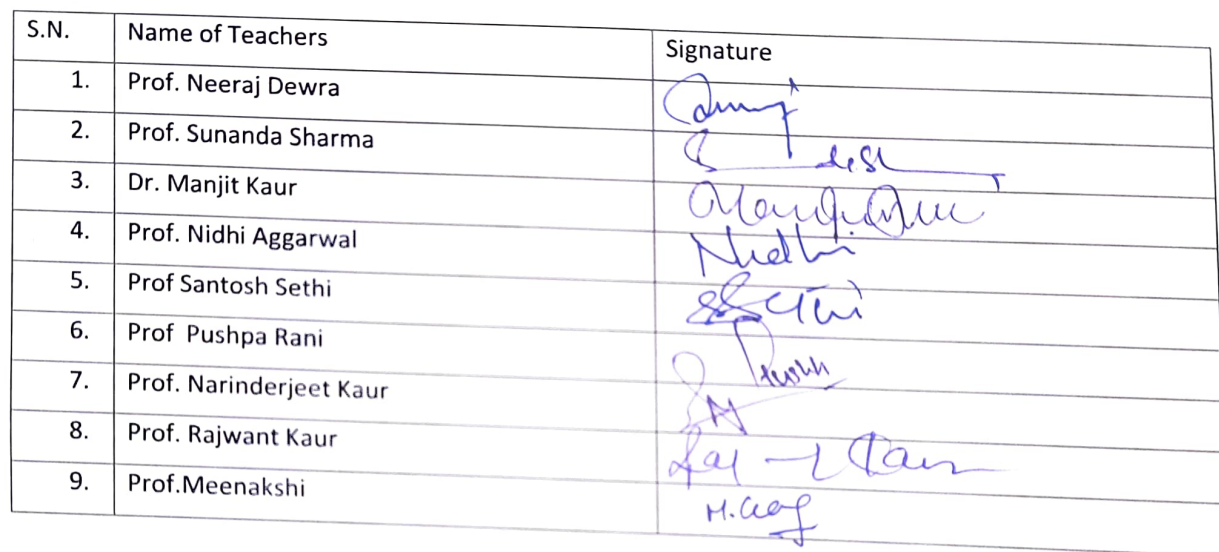 S.N. Name of Teachers Signature
1. Prof. Neeraj Dewra
2. Prof. Sunanda Sharma
3. Dr. Manjit Kaur
4. Prof. Nidhi Aggarwal Nidhi
5. Prof Santosh Sethi SSethi
6. Prof Pushpa Rani
7. Prof. Narinderjeet Kaur
8. Prof. Rajwant Kaur
9. Prof.Meenakshi